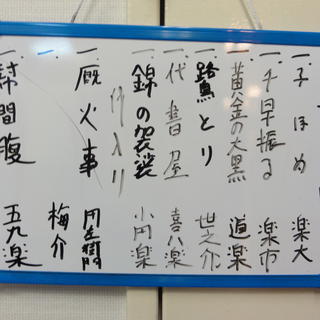 一. 子ほめ 楽大
一. 千早振る 楽市
一. 黄金の大黒 道楽
一. 鷺とり 世之介
一. 代書屋 喜八楽
一. 錦の袈裟 小円楽
仲入り
一. 厩火事 円左衛門
一. 梅介
一. 幇間腹 五九楽